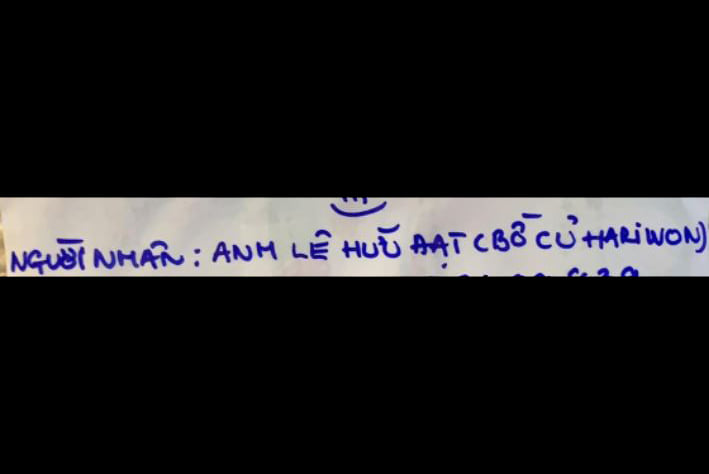 NGƯỜI NHẬN: ANH LÊ HỮU ĐẠT (BỒ CŨ HARIWON)